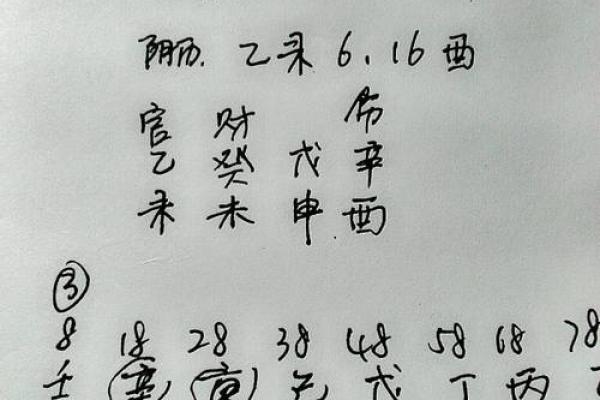 阴历. 乙未 6.16 酉
官 财 伤
乙 癸 戊 辛
未 未 申 酉
③
8 18 28 38 48 58 68 78
壬 (辛) (庚) 己 戊 丁 丙